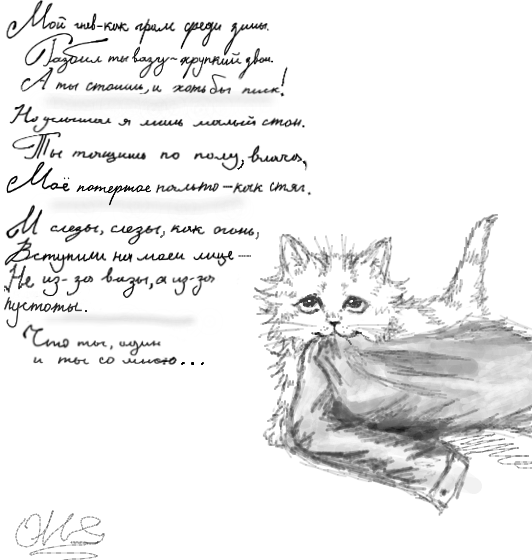 Мой гнев-как гром среди зимы.
Разбил ты вазу-хрупкий двои.
А ты стоишь, и хоть бы писк!
Но услышал я лишь малый стон.
Ты тащишь по полу, влача,
Моё потертое пальто-как стяг.
И следы, слезы, как огонь,
Вступили на моем лице-
Не из-за вазы, а из-за
пустоты.
Что ты, один
и ты со мною...